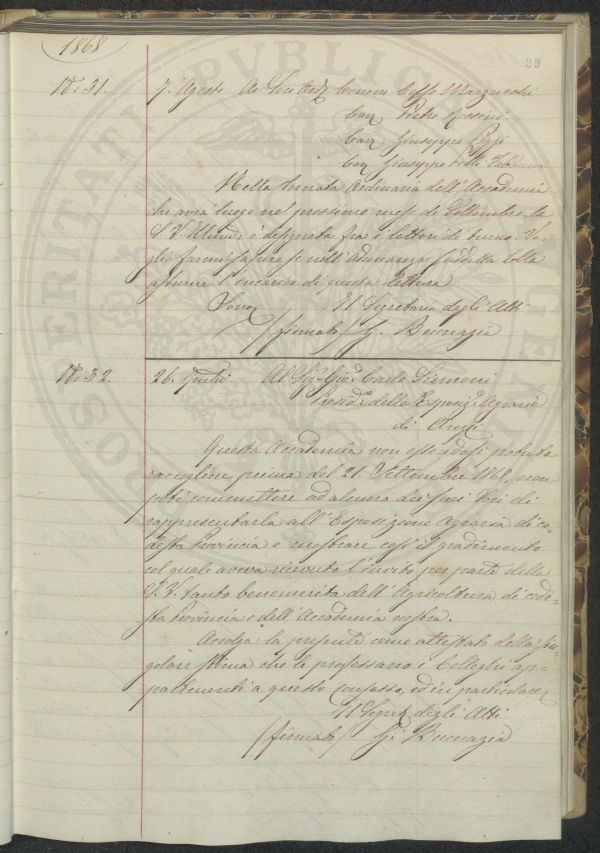 1868
29
N.° 31. 7. Agosto Ai Soci Ord.
Cav. Pietro Rossini
Cav. Giuseppe
Cav. Giuseppe della
Nella tornata ordinaria dell'Accademia
che avrà luogo nel prossimo mese di Settembre, la
S. V. Illma: è designata fra i lettori di turno. Vo-
glia farmi sapere se nell'adunanza suddetta Ella
assuma l'incarico di questa lettura
Il Segretario degli Atti
/firmato/ G. Buonazia
N.° 32. 26. Al Sig.r Gio. Carlo Siemoni
Presid.e della Esposiz.e Agraria
di Arezzo
Questa Accademia non essendosi potuta
raccogliere prima del 21. Settembre 1868, non
poté commettere ad alcuno dei suoi Soci di
rappresentarla all'Esposizione Agraria di co-
desta Provincia e mostrare così il gradimento
col quale aveva ricevuto l'invito per parte della
S. V. tanto benemerita dell'Agricoltura di code-
sta Provincia e dell'Accademia nostra.
Accolga la presente come attestato della sin-
golare stima che le professano i Colleghi ap-
partenenti a questo consesso, ed in particolare
Il Segret. degli Atti
/firmato/ G. Buonazia